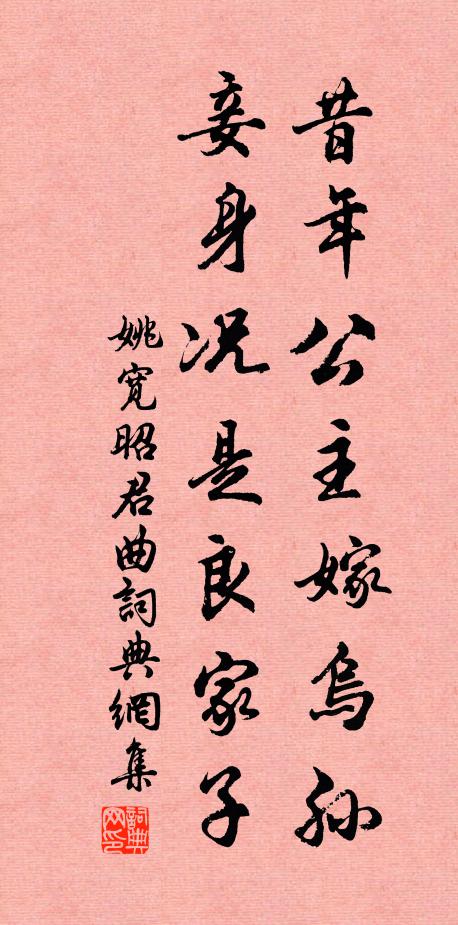 昔年公主嫁烏孫
妾身況是良家子
姚寬昭君曲詞典網集
詞典網印